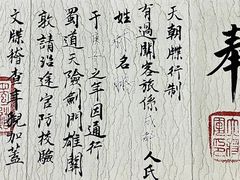 奉
天朝牒行制
有過關客旅係人氏
姓名
于之年因通行
蜀道天險劍門雄關
敦請沿途官防核驗
文牒稽查年貌加蓋